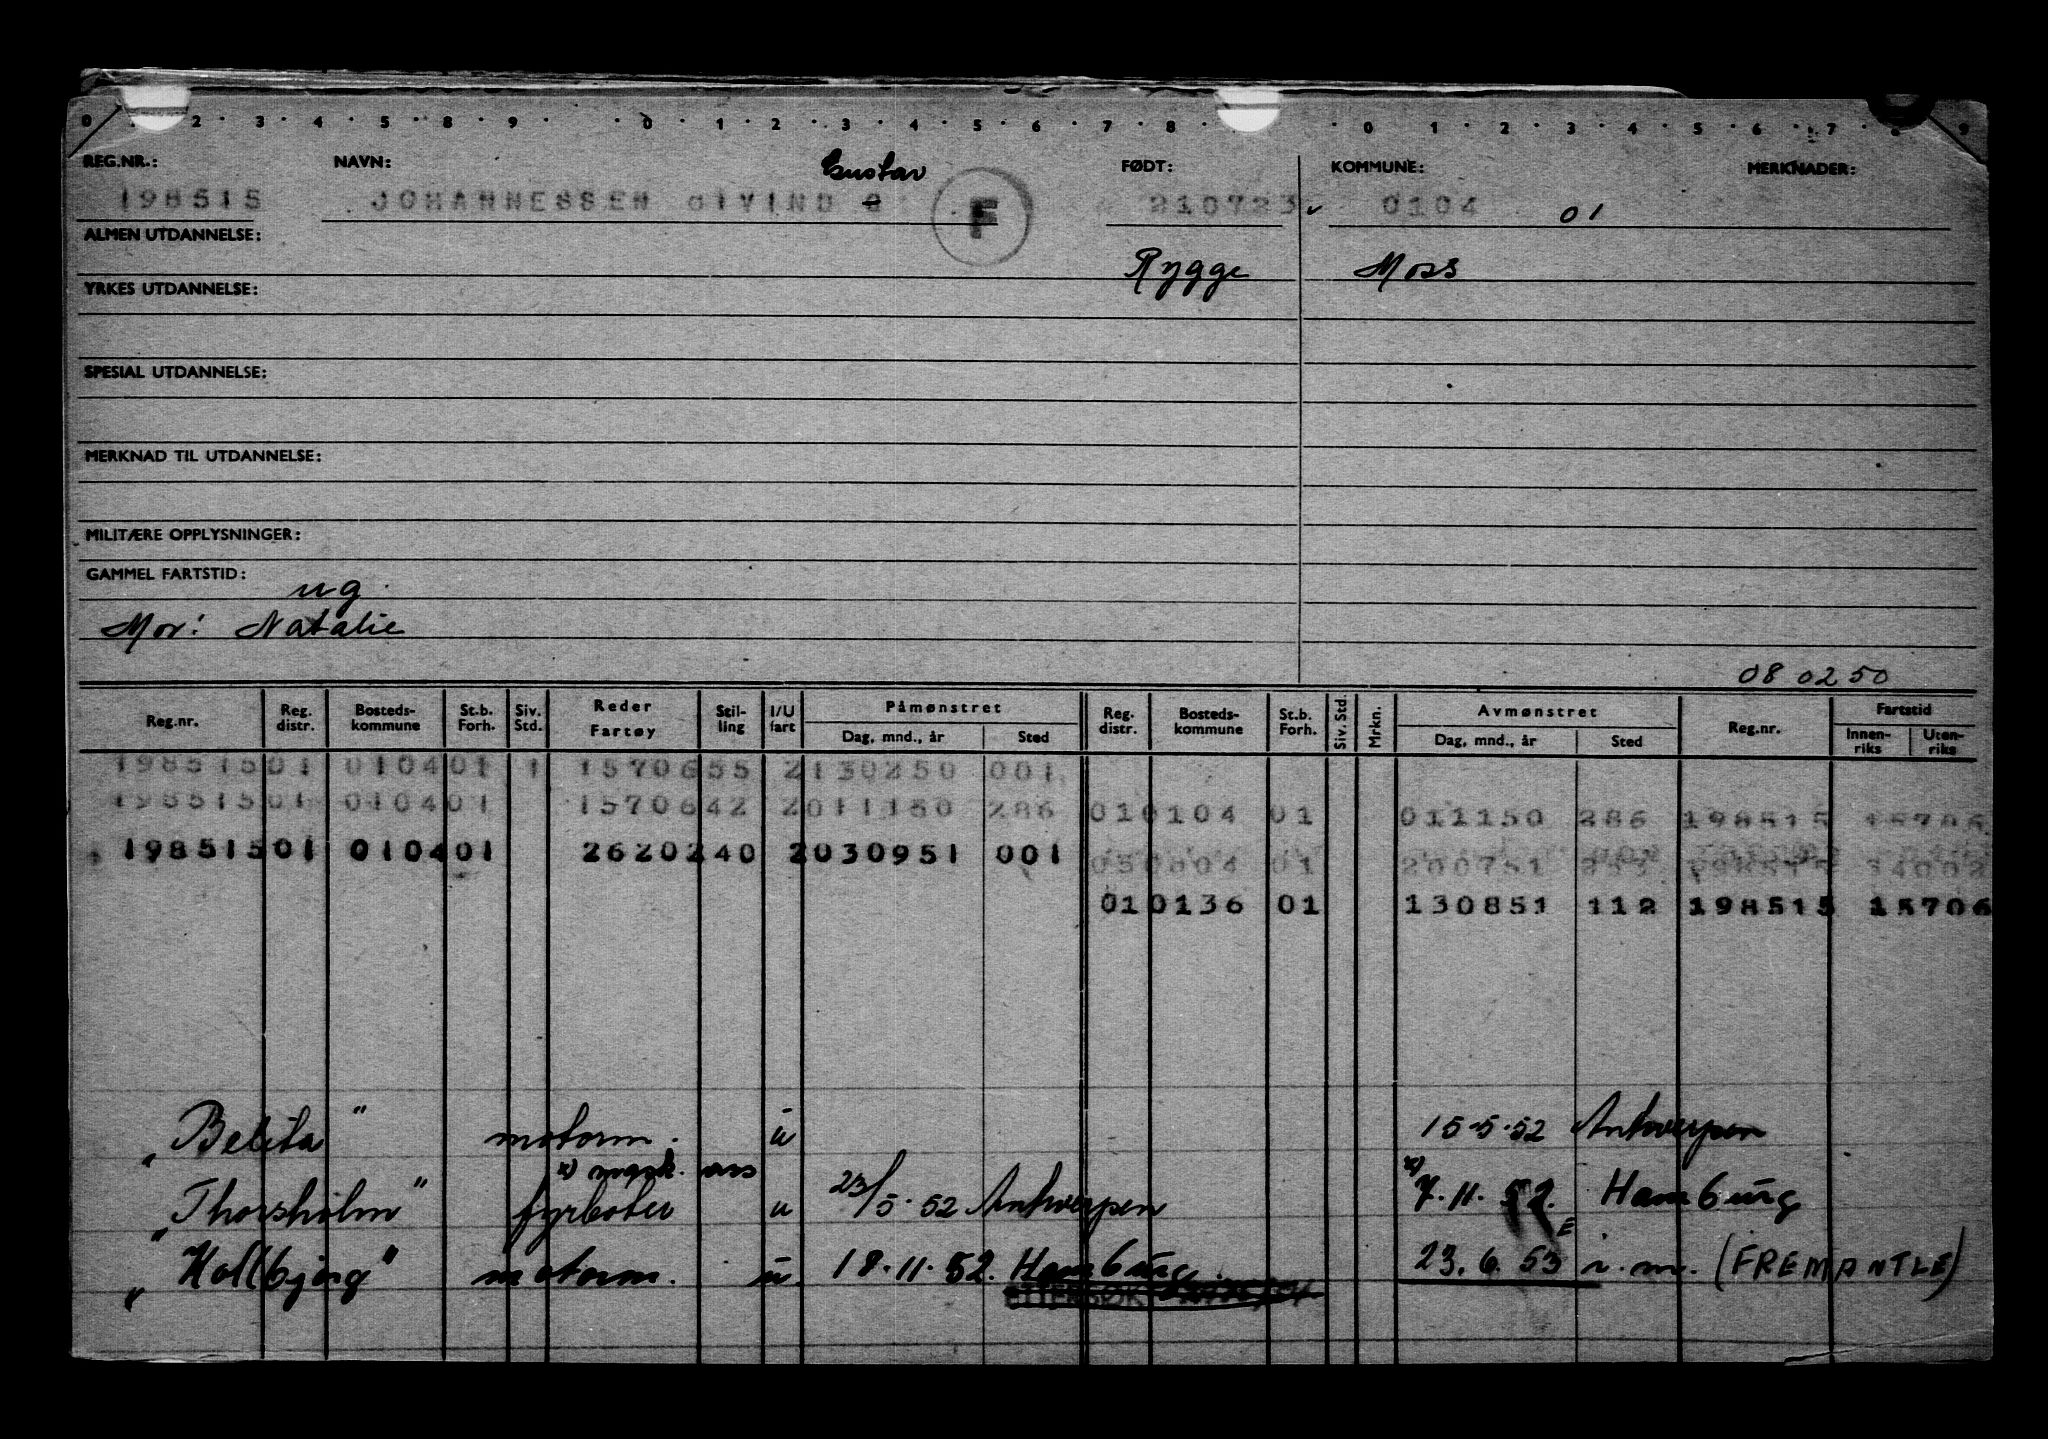 0 2 3 4 5 8 9 0 1 2 3 4 5 6 7 8 0 1 2 3 4 5 6 7 8 9
REG.NR.: NAVN: Gustav FØDT: KOMMUNE: MERKNADER:
198515 JOHANNESSEN OIVIND G F 210723 0104 01
ALMEN UTDANNELSE:
Rygge Moss
YRKES UTDANNELSE:
SPESIAL UTDANNELSE:
MERKNAD TIL UTDANNELSE:
MILITÆRE OPPLYSNINGER:
GAMMEL FARTSTID:
ug.
Mor: Natalie
08 02 50
Reg.nr. Reg. distr. Bosteds-kommune St.b. Forh. Siv. Std. Reder Fartøy Stil-ling I/U fart Påmønstret Dag, mnd., år Sted Reg. distr. Bosteds-kommune St.b. Forh. Siv. Std Mrkn. Avmønstret Dag, mnd., år Sted Reg.nr. Fartstid Innen-riks Uten-riks
198515 01 0104 01 1 1570655 2 130250 001
198515 01 0104 01 1570642 2 011150 286 01 0104 01 011150 286 198515 15706
198515 01 0104 01 2620240 2 030951 001
01 200751
01 0136 01 130851 112 198515 15706
"Belita" motorm. u 15.5.52 Antwerpen
x) mask. ass
"Thorsholm" fyrbøter u 23/5.52 Antwerpen x) 7.11.52. Hamburg
"Kollbjørg" motorm. u. 18.11.52. Hamburg. 23.6.53 E i.m. (FREMANTLE)